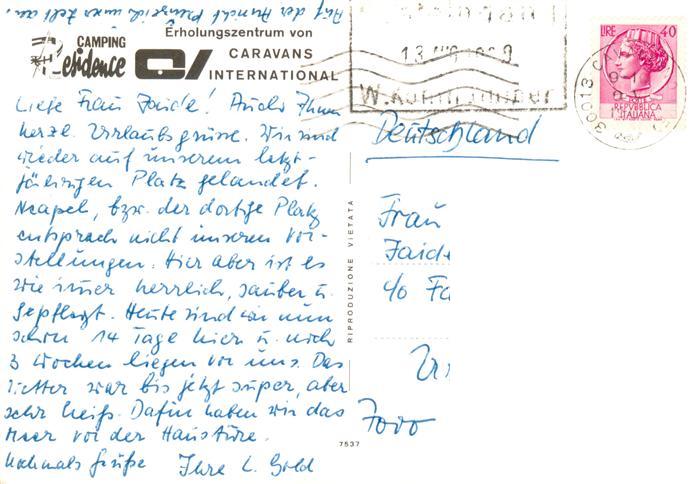 Auf der Ansicht kennzeich. unser Zelt an.
CAMPING
Residence
Erholungszentrum von
CARAVANS
INTERNATIONAL
Liebe Frau Jaide! Auch Ihnen
herzl. Urlaubsgrüsse. Wir sind
wieder auf unserem letzt-
jährigen Platz gelandet.
Neapel, bzw. der dortige Platz
entsprach nicht unseren Vor-
stellungen. Hier aber ist es
wie immer herrlich, sauber u.
gepflegt. Heute sind wir nun
schon 14 Tage hier u. noch
3 Wochen liegen vor uns. Das
Wetter war bis jetzt super, aber
sehr heiß. Dafür haben wir das
Meer vor der Haustüre.
Nochmals Grüße Ihre L. Gold
RIPRODUZIONE VIETATA
7537
LIRE 40
REPVBBLICA
ITALIANA
30013
Deutschland
Frau
Jaide
c/o Fa